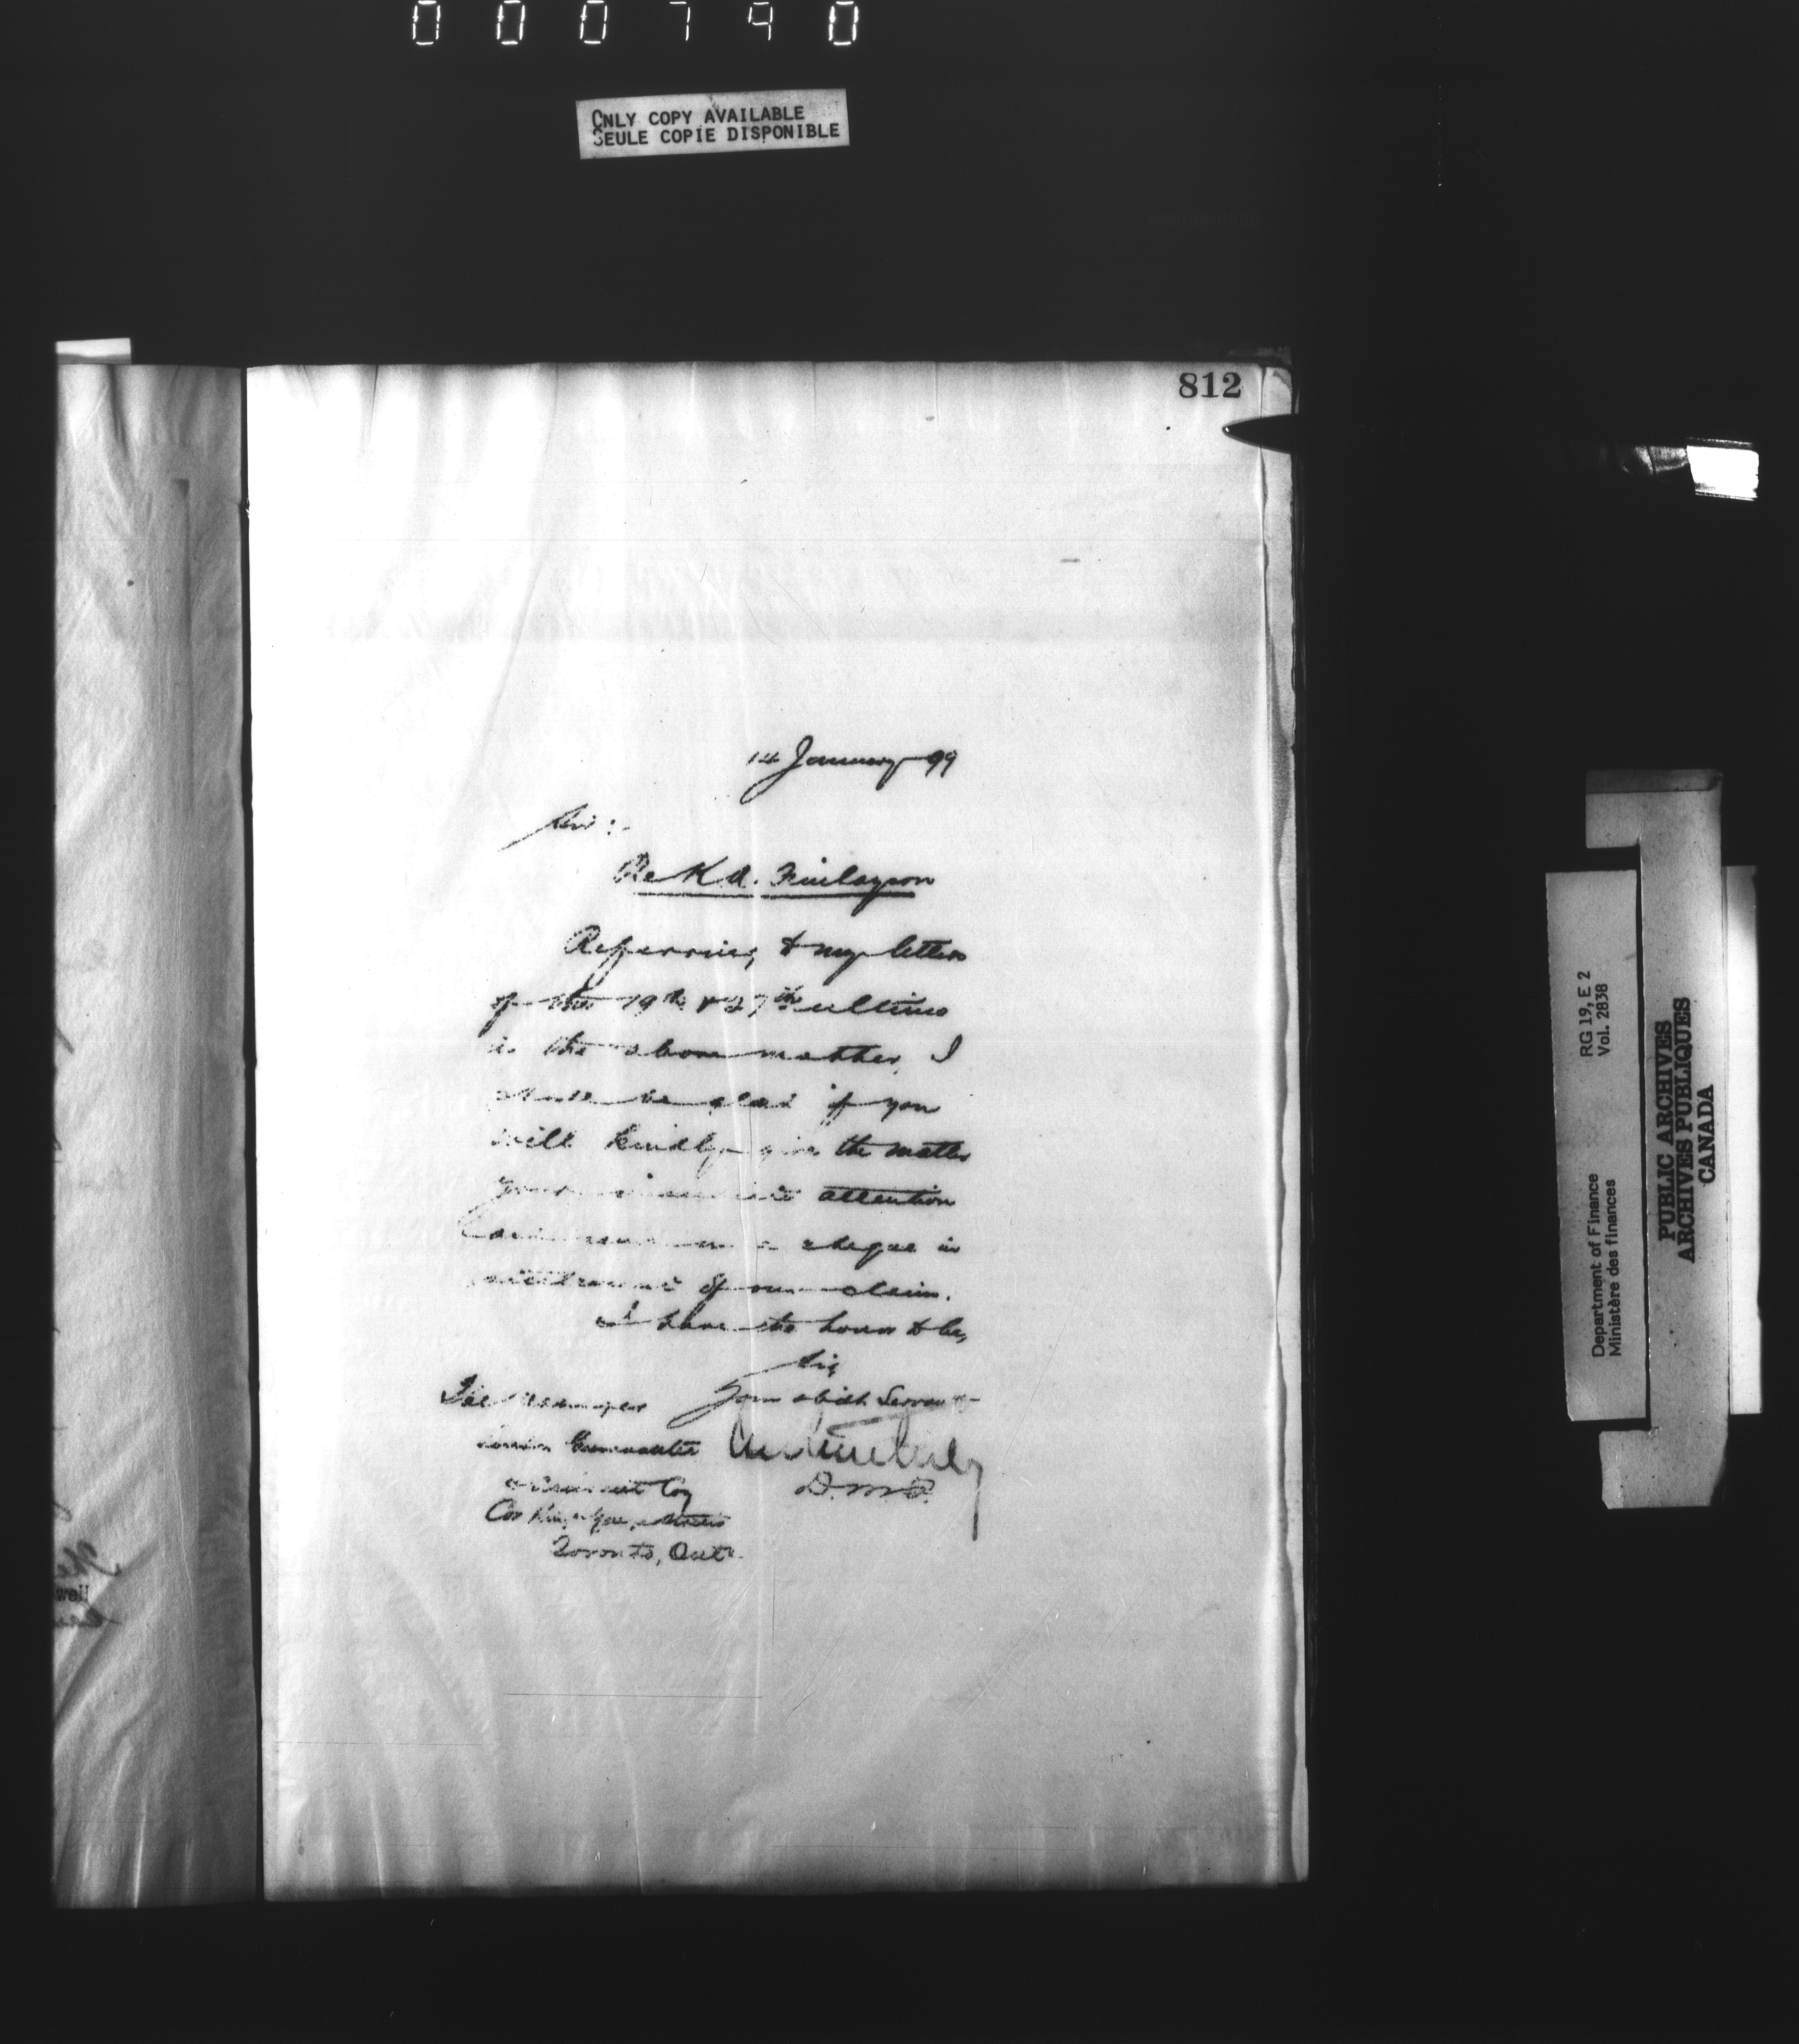 000790
ONLY COPY AVAILABLE
SEULE COPIE DISPONIBLE
812
14 January 99
Sir:-
Re K A. Finlayson
Referring to my letters
of the 19th & 27th ultimo
in the above matter, I
shall be glad if you
will kindly give the matter
your immediate attention
and send me a cheque in
settlement of our claim.
I have the honor to be,
Sir,
Your obdt Servant
The Manager
London Guarantee
D.M.F.
Accident Coy
Cor King & Yonge Streets
Toronto, Ont.
well
RG 19, E 2
Vol. 2838
Department of Finance
Ministère des finances
PUBLIC ARCHIVES
ARCHIVES PUBLIQUES
CANADA